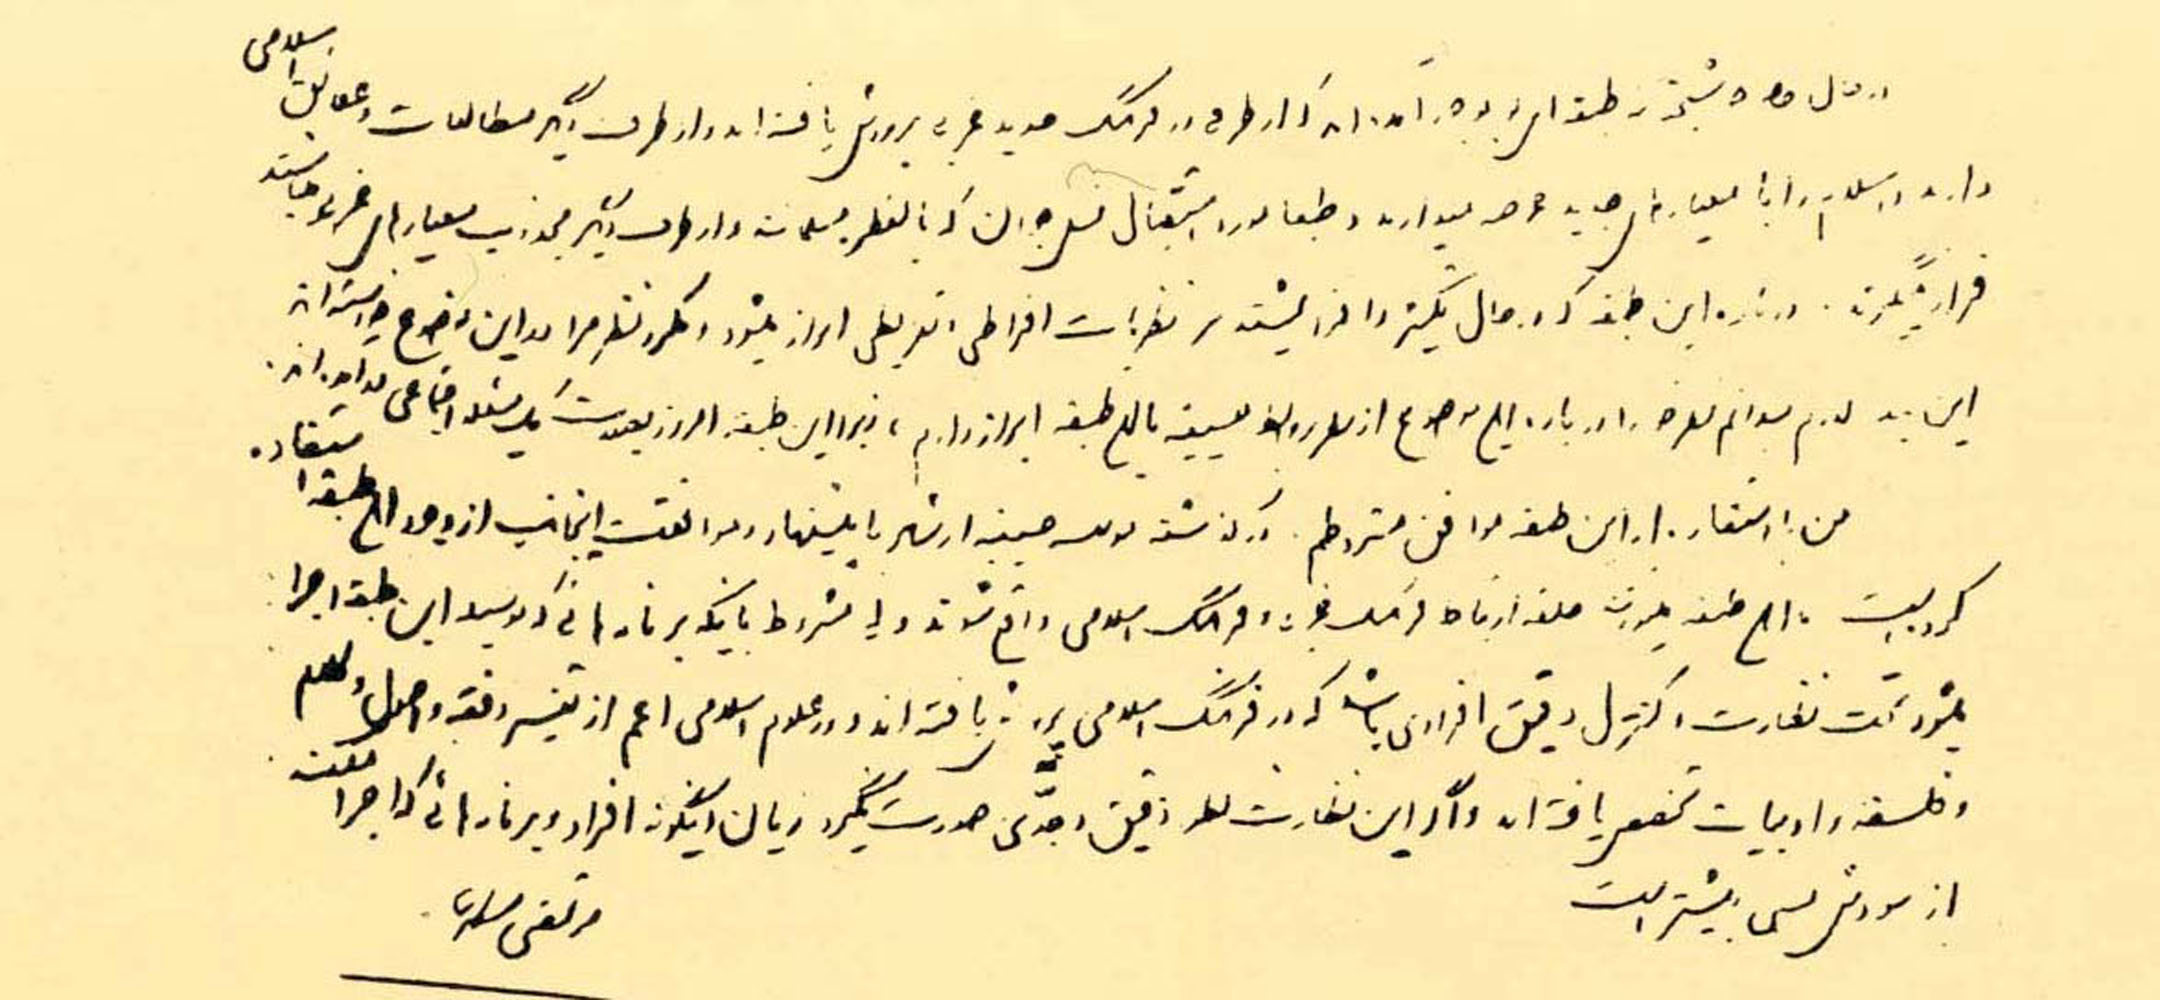 در حال حاضر طبقه‌ای بوجود آمده‌اند که از طرفی در فرهنگ جدید غربی پرورش یافته‌اند و از طرف دیگر مطالعات و علائق اسلامی
دارند و اسلام را با معیارهای جدید عرضه میدارند و طبعا مورد استقبال نسل جوان که بالفطره مسلمانند و از طرف دیگر مجذوب معیارهای غربی
قرار میگیرند. درباره این طبقه که در حال تکثر و افزایشند نظریات افراطی و تفریطی ابراز میشود و مکرر نظر مرا در این موضوع خواسته‌اند
این بنده لازم میدانم نظر خود را درباره این موضوع از نظر وظیفه این طبقه ابراز دارم، زیرا این طبقه امروز بصورت یک مسئله اجتماعی درآمده‌اند.
من با استفاده از این طبقه موافق مشروطم. در گذشته موسسه حسینیه ارشاد با پیشنهاد و موافقت اینجانب از وجود این طبقه استفاده
کرده است. این طبقه میتوانند حلقه ارتباط فرهنگ و فرهنگ اسلامی واقع شوند ولی مشروط باینکه برنامه‌هائی که بوسیله این طبقه اجرا
میشود تحت نظارت و کنترل دقیق افرادی باشد که در فرهنگ اسلامی پرورش یافته‌اند و در علوم اسلامی اعم از تفسیر و فقه و اصول و کلام
و فلسفه و ادبیات تخصص یافته‌اند و اگر این نظارت بطور دقیق و جدی صورت نگیرد زیان اینگونه افراد و برنامه‌هائی که اجرا میکنند
از سودش بسی بیشتر است
مرتضی مطهری